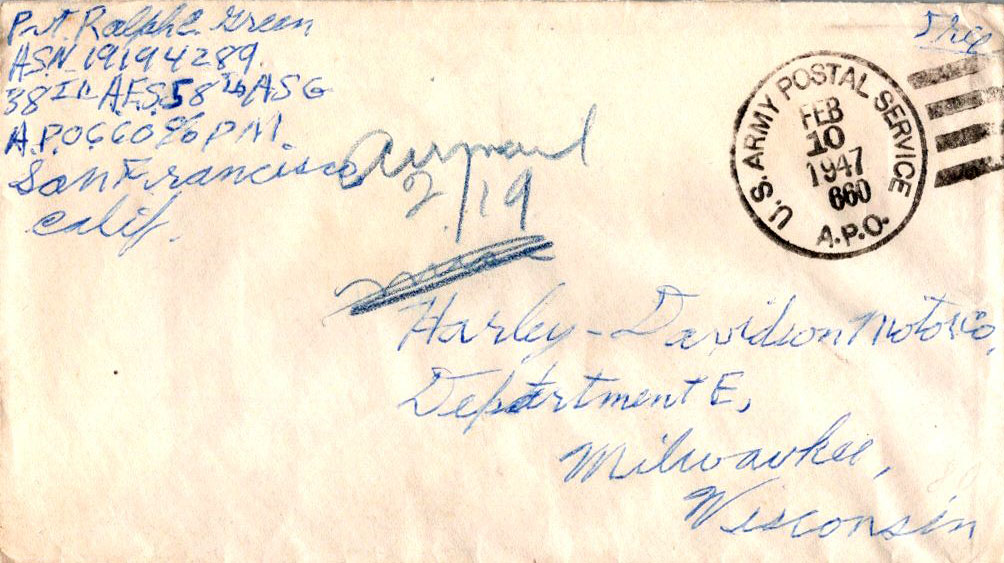 Pvt. Ralph E. Green
ASN 19194289.
38Th AES 58Th ASG
A.P.O 660 c/o P.M.
San Francisco
Calif.
Free
U.S. ARMY POSTAL SERVICE
FEB
10
1947
660
A.P.O.
Airmail
2/19
Harley-Davidson Motor Co,
Department E,
Milwaukee,
Wisconsin